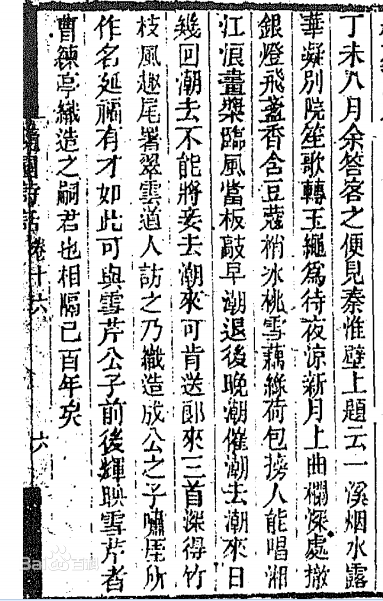 丁未八月余答客之便見秦淮壁上題云一溪烟水露
華凝別院笙歌轉玉繩爲待夜凉新月上曲欄深處撤
銀燈飛盞香含豆蔻梢冰桃雪藕綠荷包榜人能唱湘
江浪畫槳臨風當板敲早潮退後晚潮催潮去潮來日
幾回潮去不能將妾去潮來可肯送郎來三首深得竹
枝風趣尾署翠雲道人訪之乃織造成公之子嘯厓所
作名延福有才如此可與雪芹公子前後輝映雪芹者
曹練亭織造之嗣君也相隔已百年矣
隨園詩話 卷十六 六
Bai百科